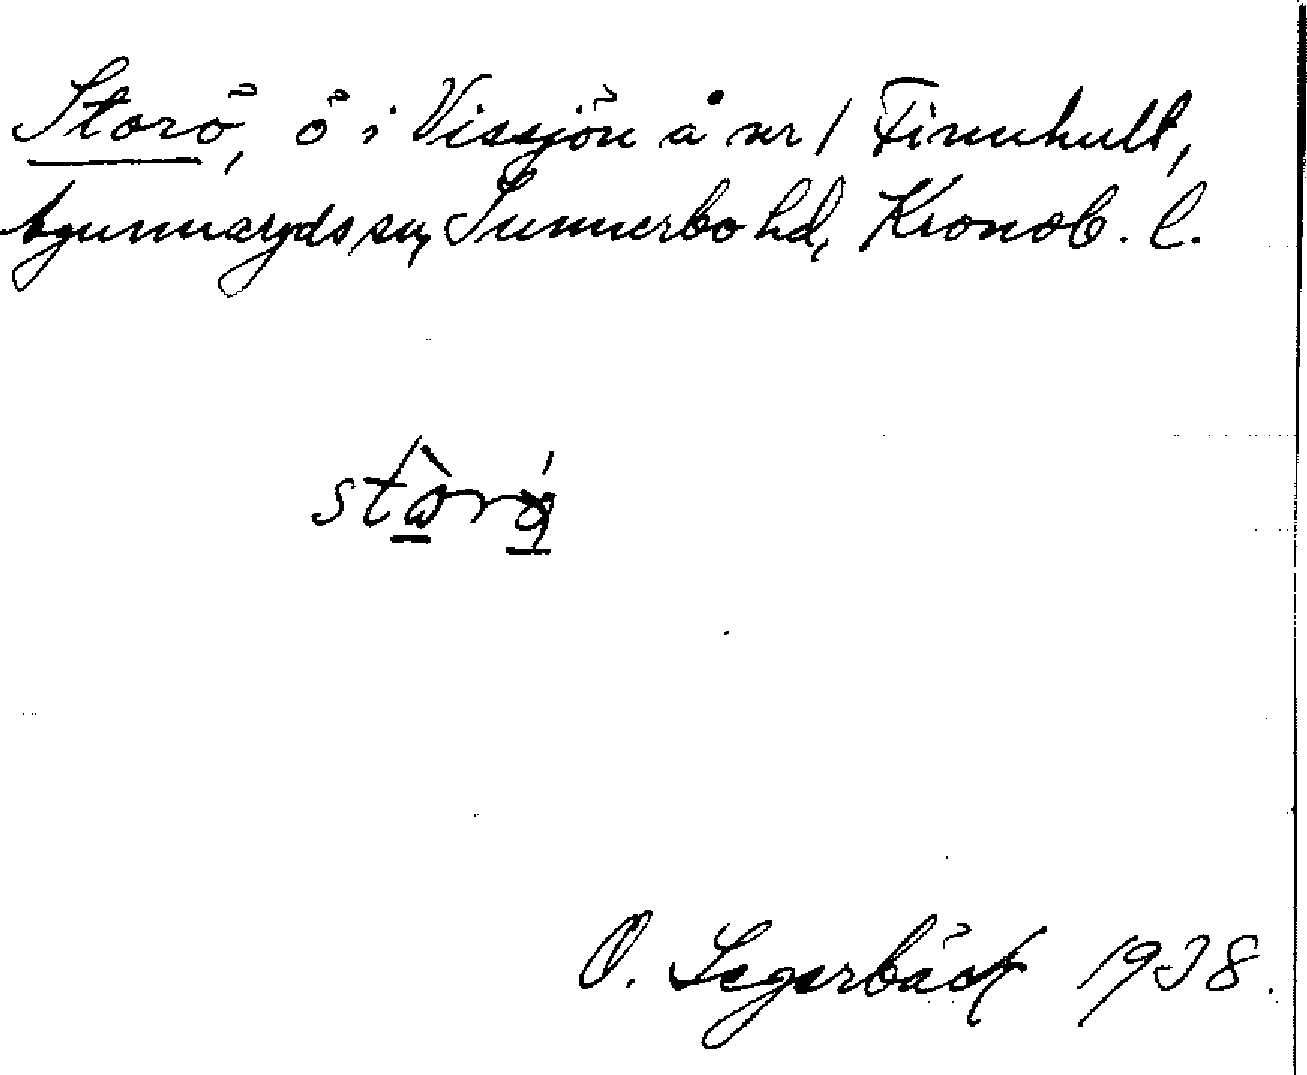 Storö, ö i Vissjön å nr 1 Finnhult,
Agunnaryds sn, Sunnerbo hd, Kronob. l.
O. Segerbäck 1938.